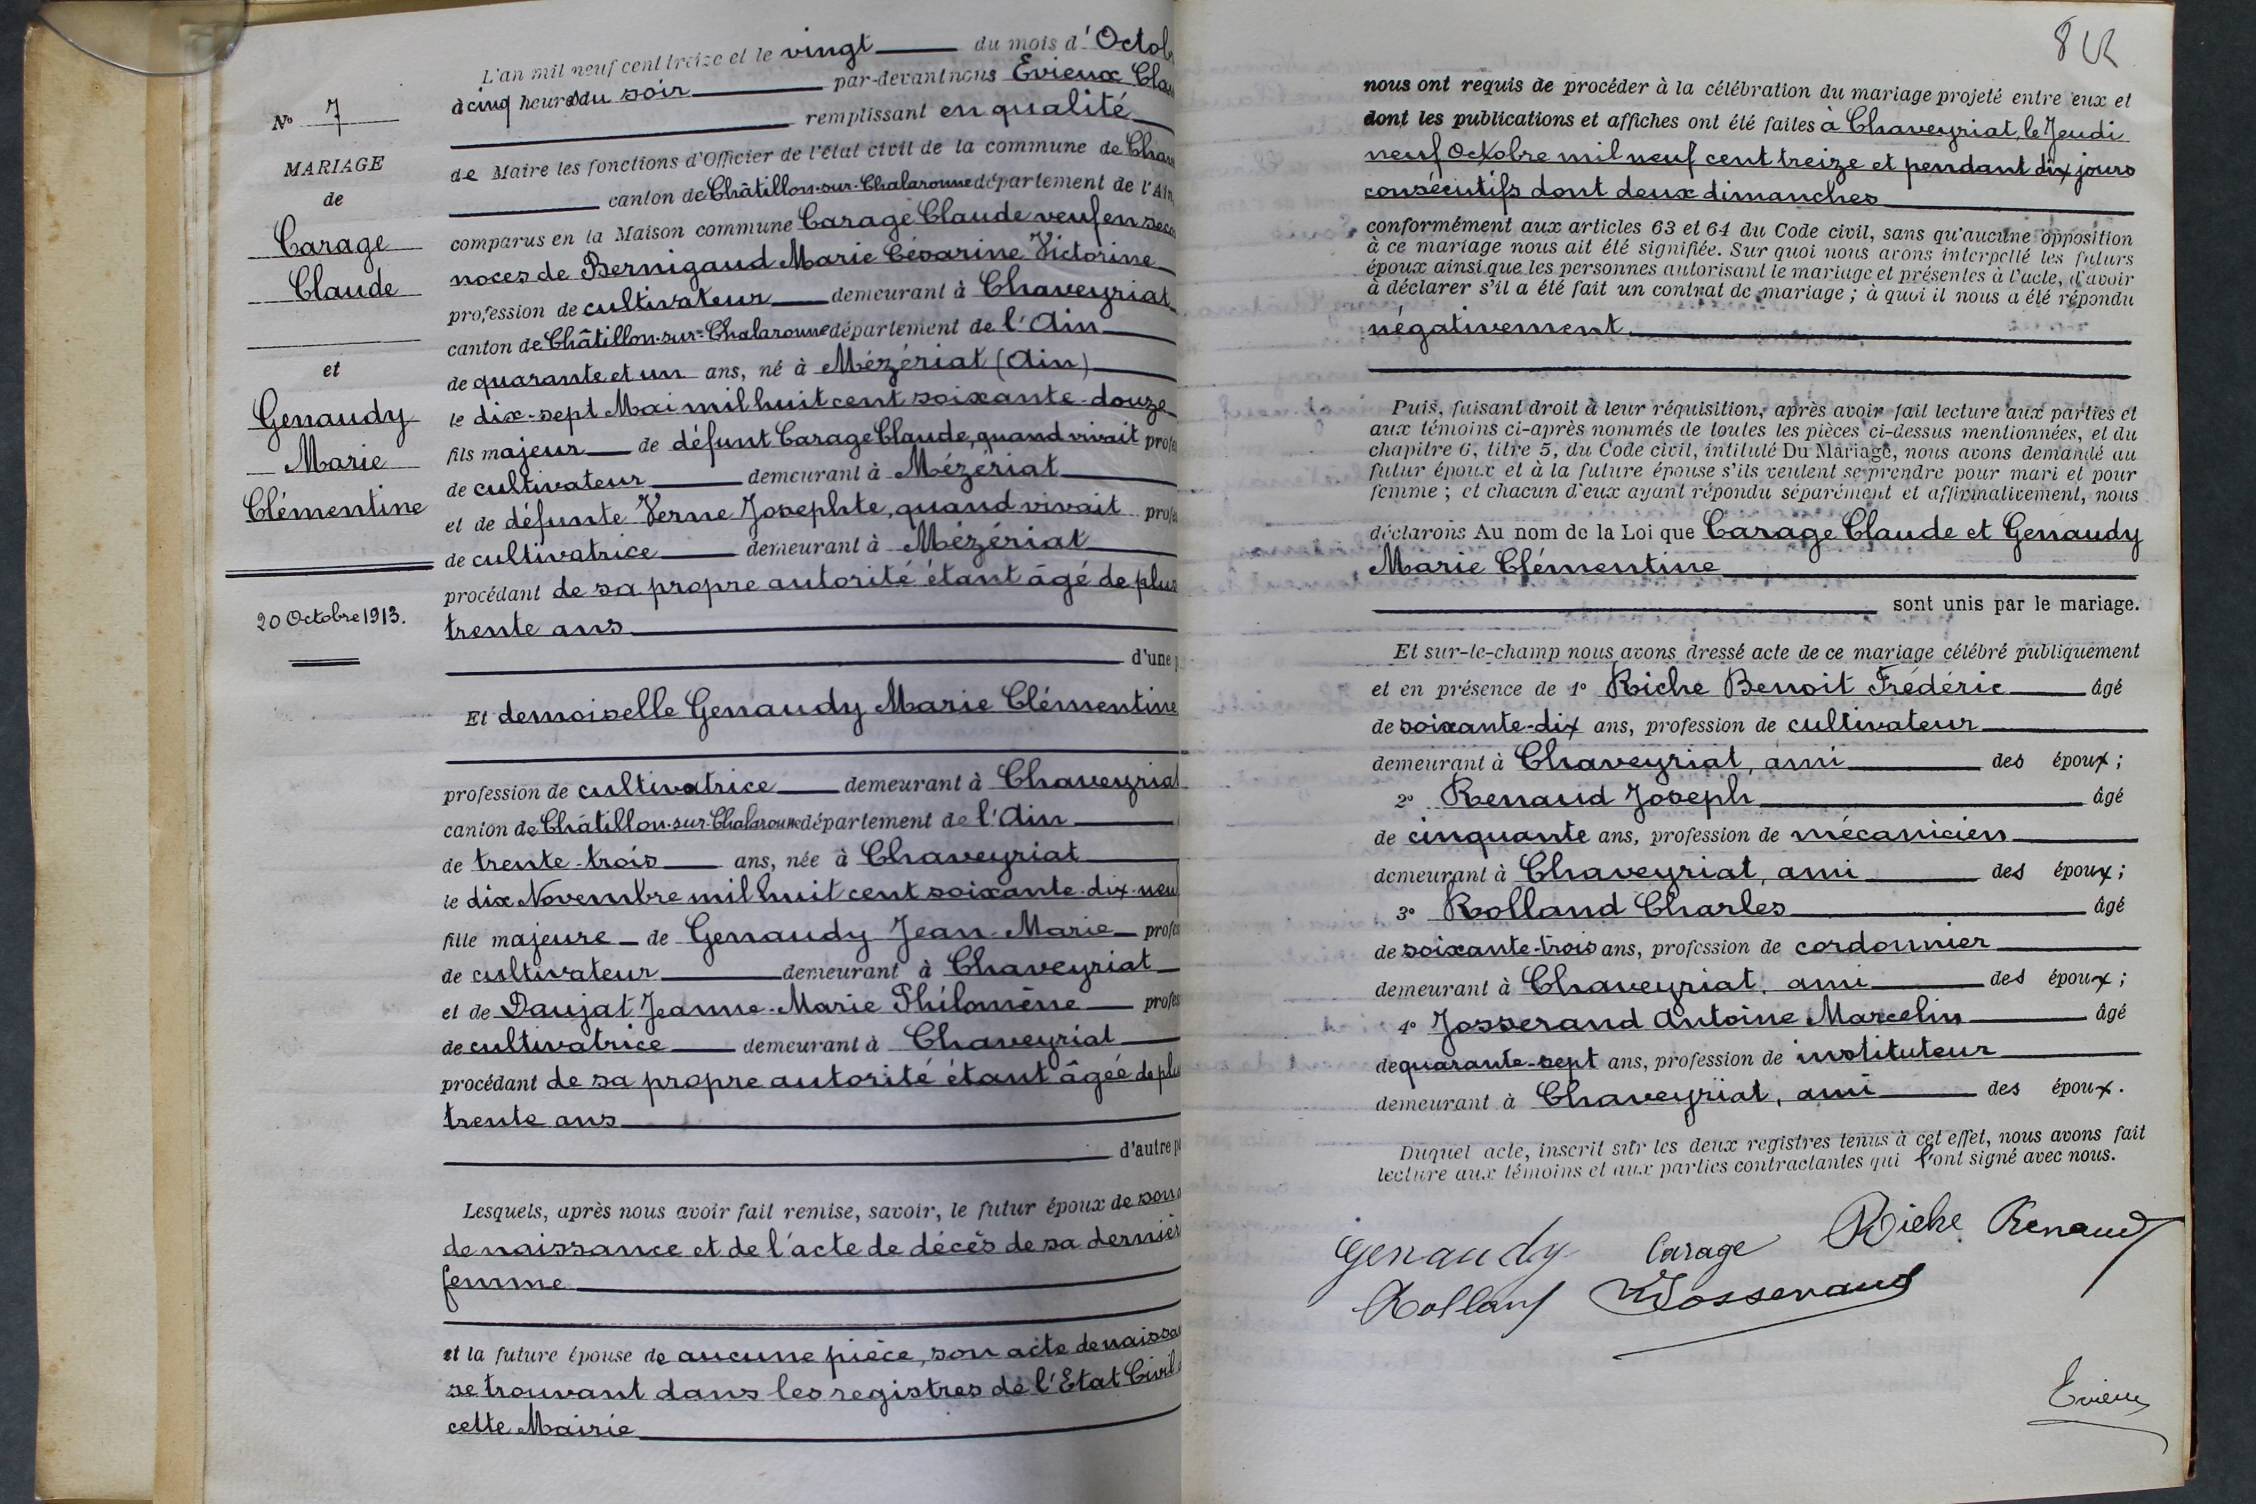 L'an mil neuf cent treize et le vingt du mois d'Octob
à cinq heures du soir par-devant nous Evieux Clau
remplissant en qualité
de Maire les fonctions d'Officier de l'état civil de la commune de Chav
canton de Châtillon-sur-Chalaronne département de l'Ain
comparus en la Maison commune Carage Claude veuf en seco
noces de Bernigaud Marie Césarine Victorine
profession de cultivateur demeurant à Chaveyriat
canton de Châtillon-sur-Chalaronne département de l'Ain
de quarante et un ans, né à Mézériat (Ain)
le dix-sept Mai mil huit cent soixante-douze
fils majeur de défunt Carage Claude, quand vivait profes
de cultivateur demeurant à Mézériat
et de défunte Verne Josephte, quand vivait profes
de cultivatrice demeurant à Mézériat
procédant de sa propre autorité étant âgé de plus
trente ans
d'une p
Et demoiselle Genaudy Marie Clémentine
profession de cultivatrice demeurant à Chaveyriat
canton de Châtillon-sur-Chalaronne département de l'Ain
de trente-trois ans, née à Chaveyriat
le dix Novembre mil huit cent soixante-dix-neuf
fille majeure de Genaudy Jean-Marie profes
de cultivateur demeurant à Chaveyriat
et de Daujat Jeanne-Marie Philomène profes
de cultivatrice demeurant à Chaveyriat
procédant de sa propre autorité étant âgée de plu
trente ans
d'autre pa
Lesquels, après nous avoir fait remise, savoir, le futur époux de son a
de naissance et de l'acte de décès de sa dernièr
femme
et la future épouse de aucune pièce, son acte de naissa
se trouvant dans les registres de l'Etat Civil d
cette Mairie
N° 7
MARIAGE
de
Carage
Claude
et
Genaudy
Marie
Clémentine
20 Octobre 1913.
8
nous ont requis de procéder à la célébration du mariage projeté entre eux et
dont les publications et affiches ont été faites à Chaveyriat, le Jeudi
neuf Octobre mil neuf cent treize et pendant dix jours
consécutifs dont deux dimanches
conformément aux articles 63 et 64 du Code civil, sans qu'aucune opposition
à ce mariage nous ait été signifiée. Sur quoi nous avons interpellé les futurs
époux ainsi que les personnes autorisant le mariage et présentes à l'acte, d'avoir
à déclarer s'il a été fait un contrat de mariage ; à quoi il nous a été répondu
négativement
Puis, faisant droit à leur réquisition, après avoir fait lecture aux parties et
aux témoins ci-après nommés de toutes les pièces ci-dessus mentionnées, et du
chapitre 6, titre 5, du Code civil, intitulé Du Mariage, nous avons demandé au
futur époux et à la future épouse s'ils veulent se prendre pour mari et pour
femme ; et chacun d'eux ayant répondu séparément et affirmativement, nous
déclarons Au nom de la Loi que Carage Claude et Genaudy
Marie Clémentine
sont unis par le mariage.
Et sur-le-champ nous avons dressé acte de ce mariage célébré publiquement
et en présence de 1° Riche Benoit Frédéric âgé
de soixante-dix ans, profession de cultivateur
demeurant à Chaveyriat, ami des époux ;
2° Renaud Joseph âgé
de cinquante ans, profession de mécanicien
demeurant à Chaveyriat, ami des époux ;
3° Rolland Charles âgé
de soixante-trois ans, profession de cordonnier
demeurant à Chaveyriat, ami des époux ;
4° Josserand Antoine Marcelin âgé
de quarante-sept ans, profession de instituteur
demeurant à Chaveyriat, ami des époux.
Duquel acte, inscrit sur les deux registres tenus à cet effet, nous avons fait
lecture aux témoins et aux parties contractantes qui l'ont signé avec nous.
Genaudy Carage Riche Renaud
Rolland Josserand
Evieux